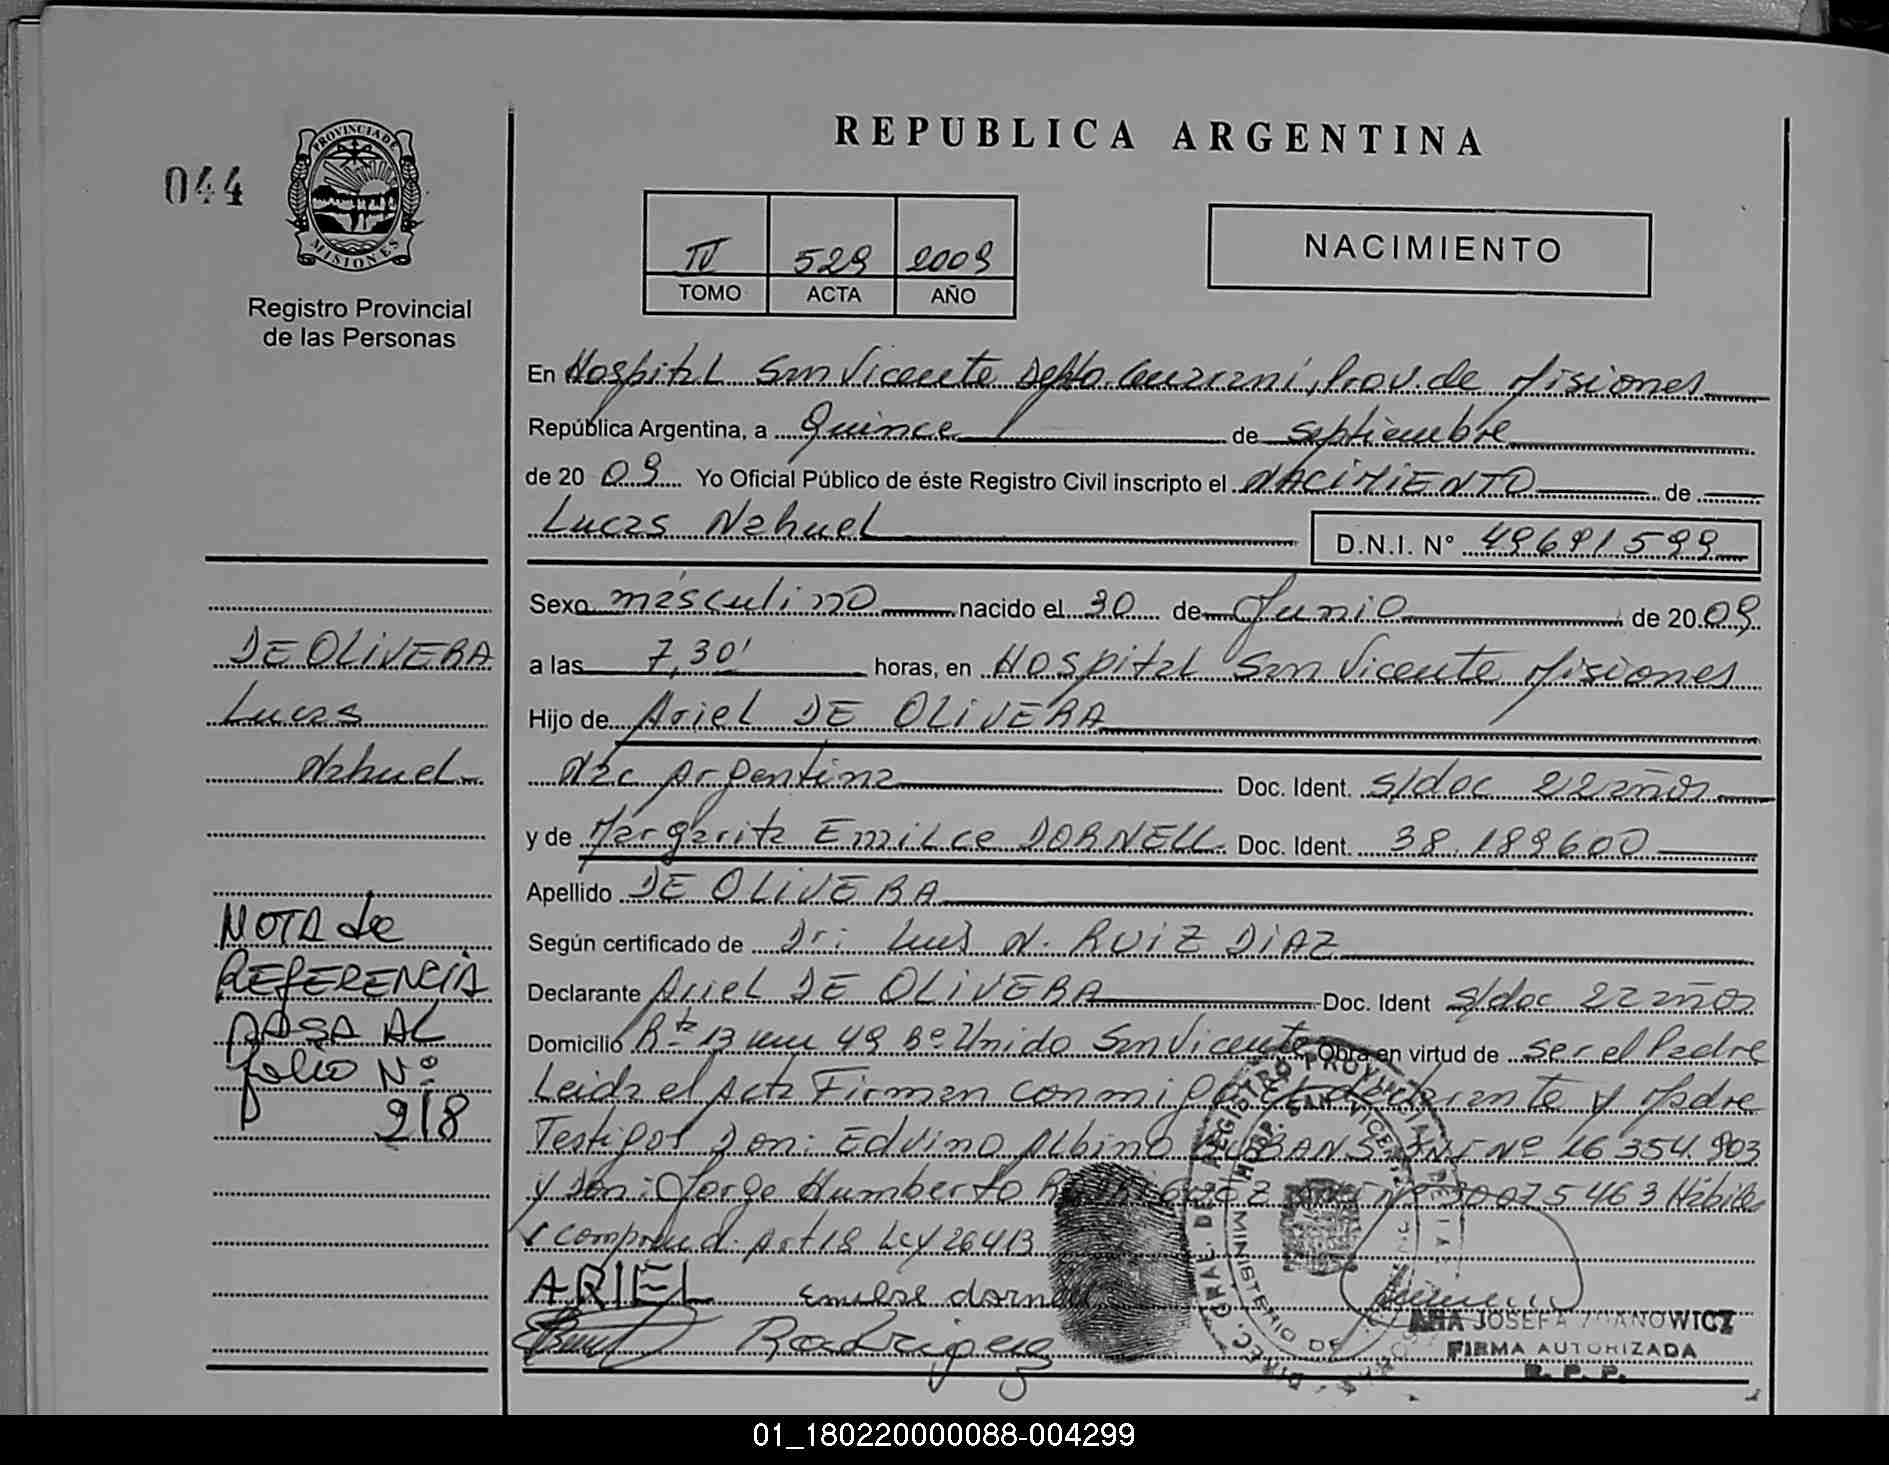 044
PROVINCIA DE
MISIONES
Registro Provincial
de las Personas
REPUBLICA ARGENTINA
IV 529 2009
TOMO ACTA AÑO
NACIMIENTO
En Hospital San Vicente Dpto. Guaraní, Prov. de Misiones
República Argentina, a Quince de septiembre
de 20 09 Yo Oficial Público de éste Registro Civil inscripto el NACIMIENTO de
Lucas Nahuel D.N.I. N° 49691599
Sexo masculino nacido el 30 de Junio de 20 09
a las 7,30' horas, en Hospital San Vicente Misiones
Hijo de Ariel DE OLIVERA
Nac Argentina Doc. Ident. s/doc 22 años
y de Margarita Emilce DORNELL Doc. Ident. 38.189600
Apellido DE OLIVERA
Según certificado de Dr: Luis N. RUIZ DIAZ
Declarante Ariel DE OLIVERA Doc. Ident s/doc 22 años
Domicilio Rta 13 km 49 Bº Unido San Vicente Obra en virtud de ser el Padre
Leida el Acta Firman conmigo el declarante y Madre
Testigos Don: Edvino Albino DNI Nº 16 354.903
y Don: Jorge Humberto Nº 30075463 Habiles
Art 18 Ley 26413
ARIEL emilse dornell
Rodriguez
DE OLIVERA
Lucas
Nahuel
NOTA de
REFERENCIA
PASA AL
folio Nº
218
ANA JOSEFA
FIRMA AUTORIZADA
R. P. P.
01_180220000088-004299